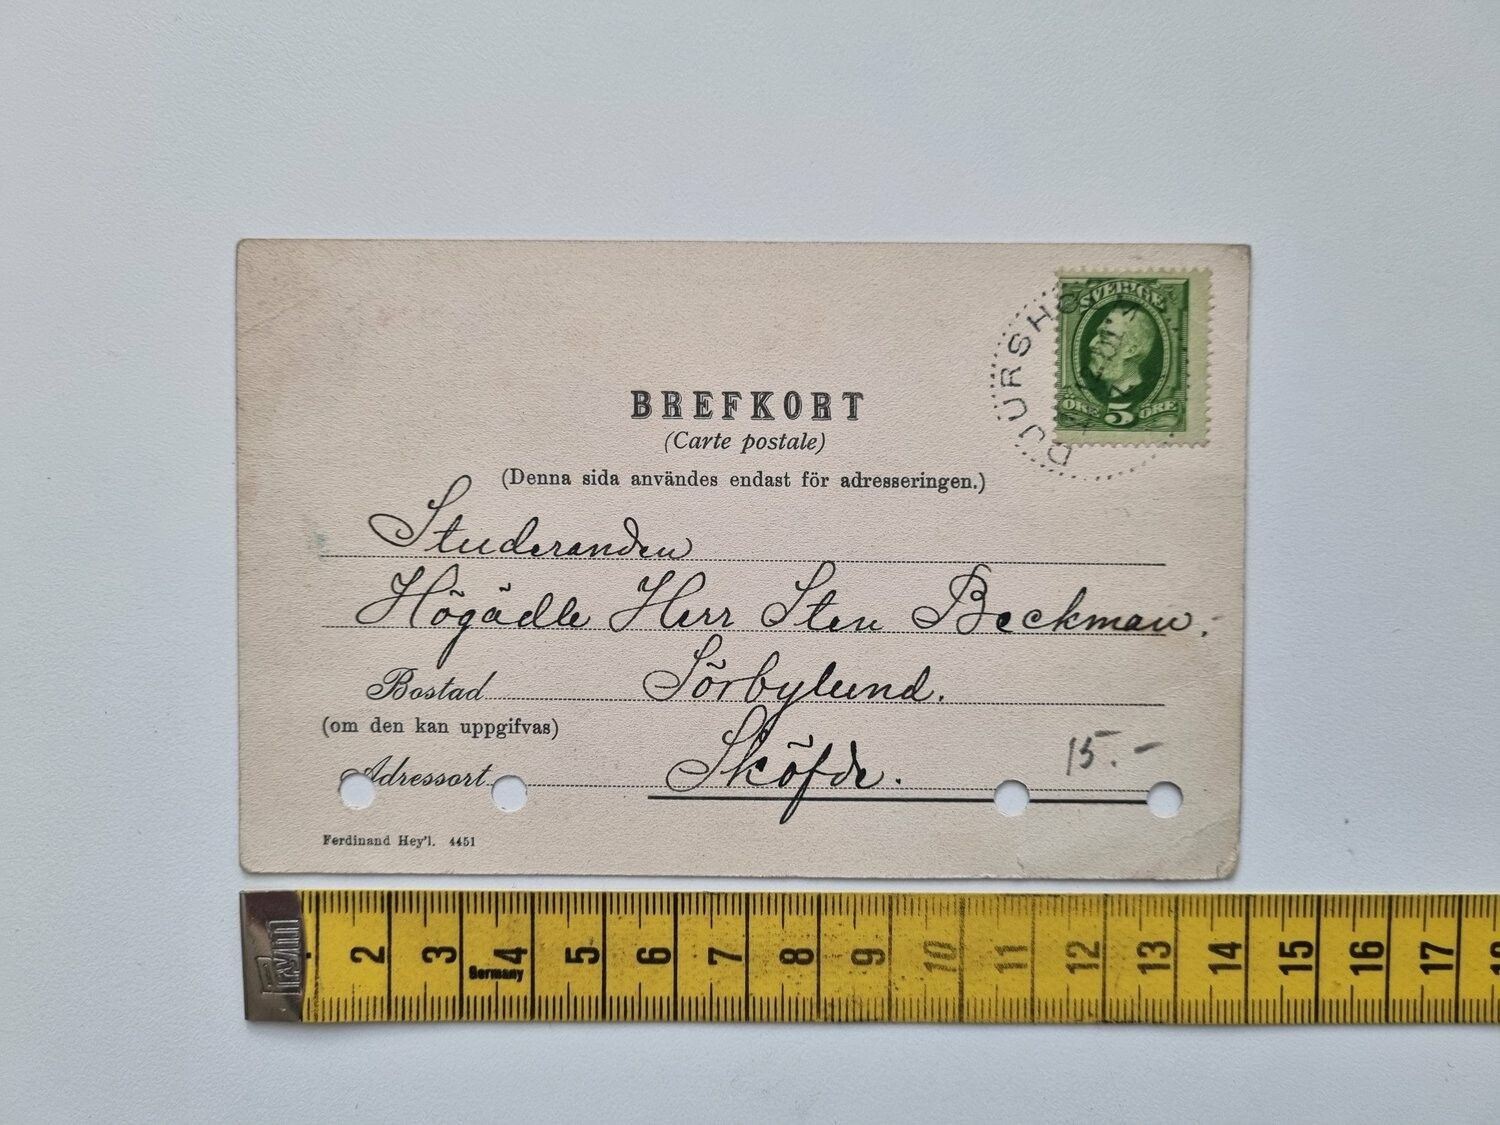 BREFKORT
(Carte postale)
(Denna sida användes endast för adresseringen.)
SVERIGE
ÖRE 5 ÖRE
DJURSHO
Studeranden
Högädle Herr Sten Beckman.
Bostad Sörbylund.
(om den kan uppgifvas)
Adressort Sköfde.
15.-
Ferdinand Hey'l. 4451
2 3 4 5 6 7 8 9 10 11 12 13 14 15 16 17 18
Germany